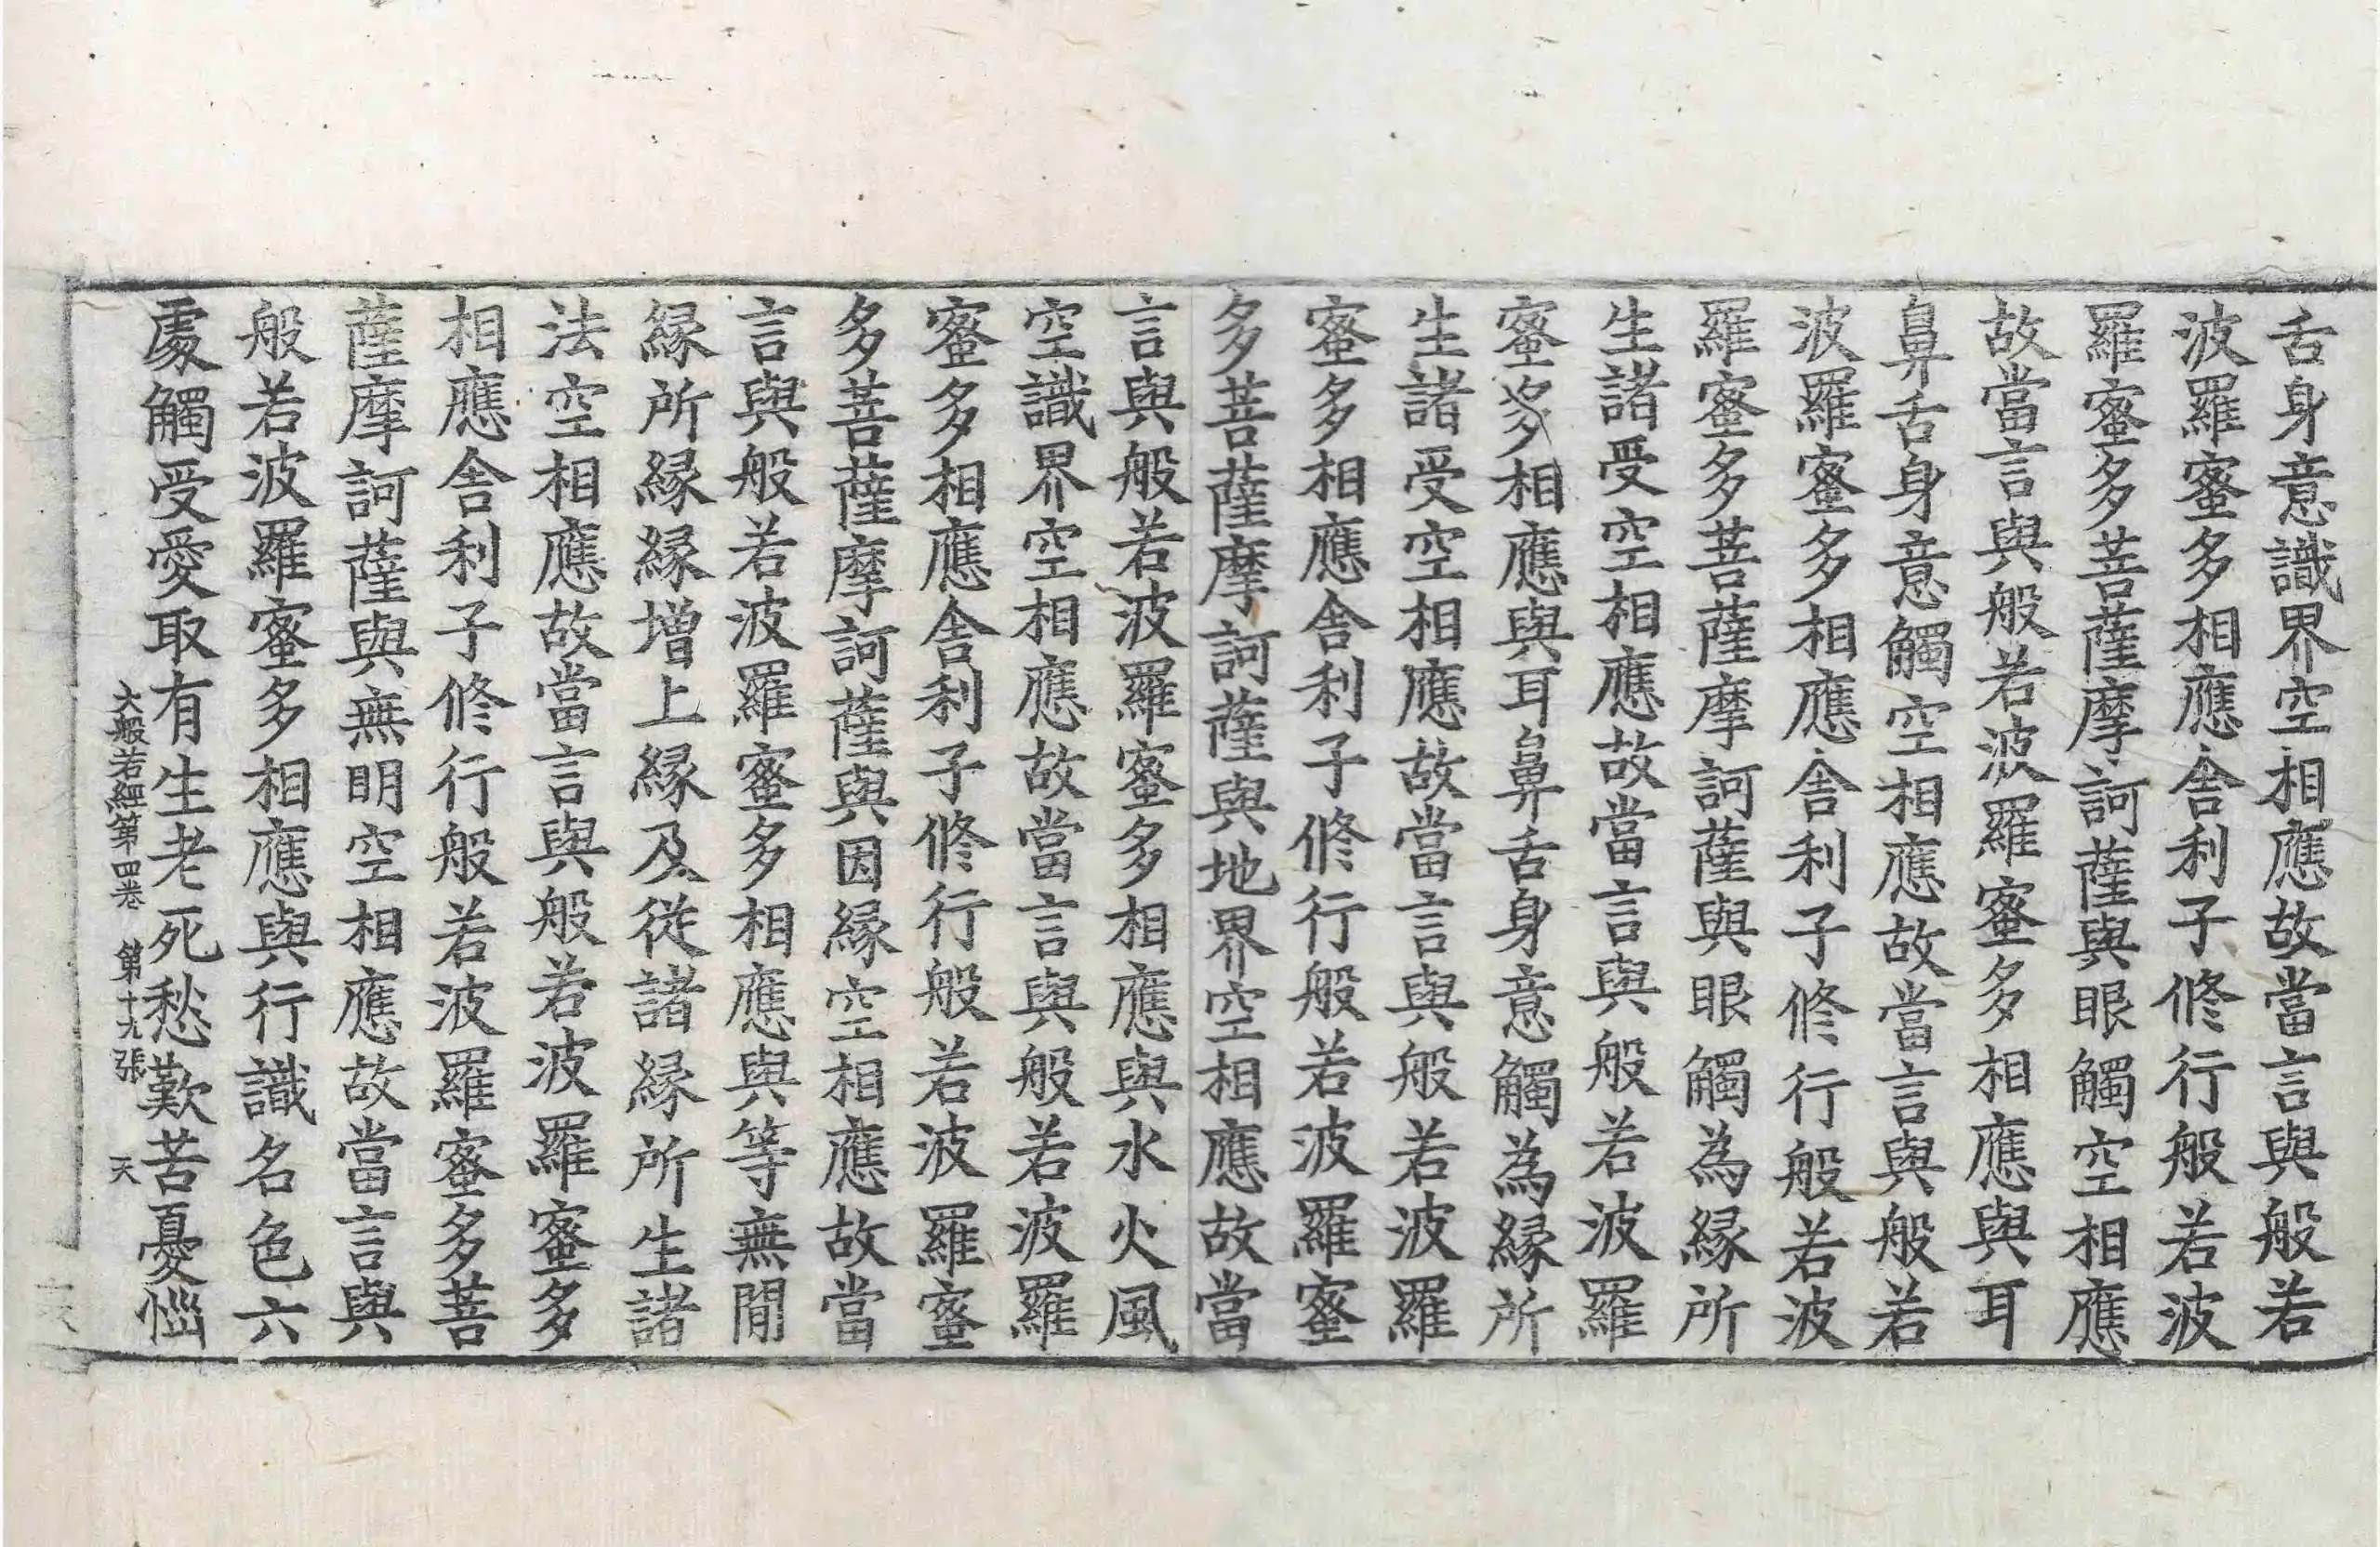 舌身意識界空相應故當言與般若
波羅蜜多相應舍利子修行般若波
羅蜜多菩薩摩訶薩與眼觸空相應
故當言與般若波羅蜜多相應與耳
鼻舌身意觸空相應故當言與般若
波羅蜜多相應舍利子修行般若波
羅蜜多菩薩摩訶薩與眼觸為緣所
生諸受空相應故當言與般若波羅
蜜多相應與耳鼻舌身意觸為緣所
生諸受空相應故當言與般若波羅
蜜多相應舍利子修行般若波羅蜜
多菩薩摩訶薩與地界空相應故當
言與般若波羅蜜多相應與水火風
空識界空相應故當言與般若波羅
蜜多相應舍利子修行般若波羅蜜
多菩薩摩訶薩與因緣空相應故當
言與般若波羅蜜多相應與等無閒
緣所緣緣增上緣及從諸緣所生諸
法空相應故當言與般若波羅蜜多
相應舍利子修行般若波羅蜜多菩
薩摩訶薩與無明空相應故當言與
般若波羅蜜多相應與行識名色六
處觸受愛取有生老死愁歎苦憂惱
大般若經第四卷 第十九張 天